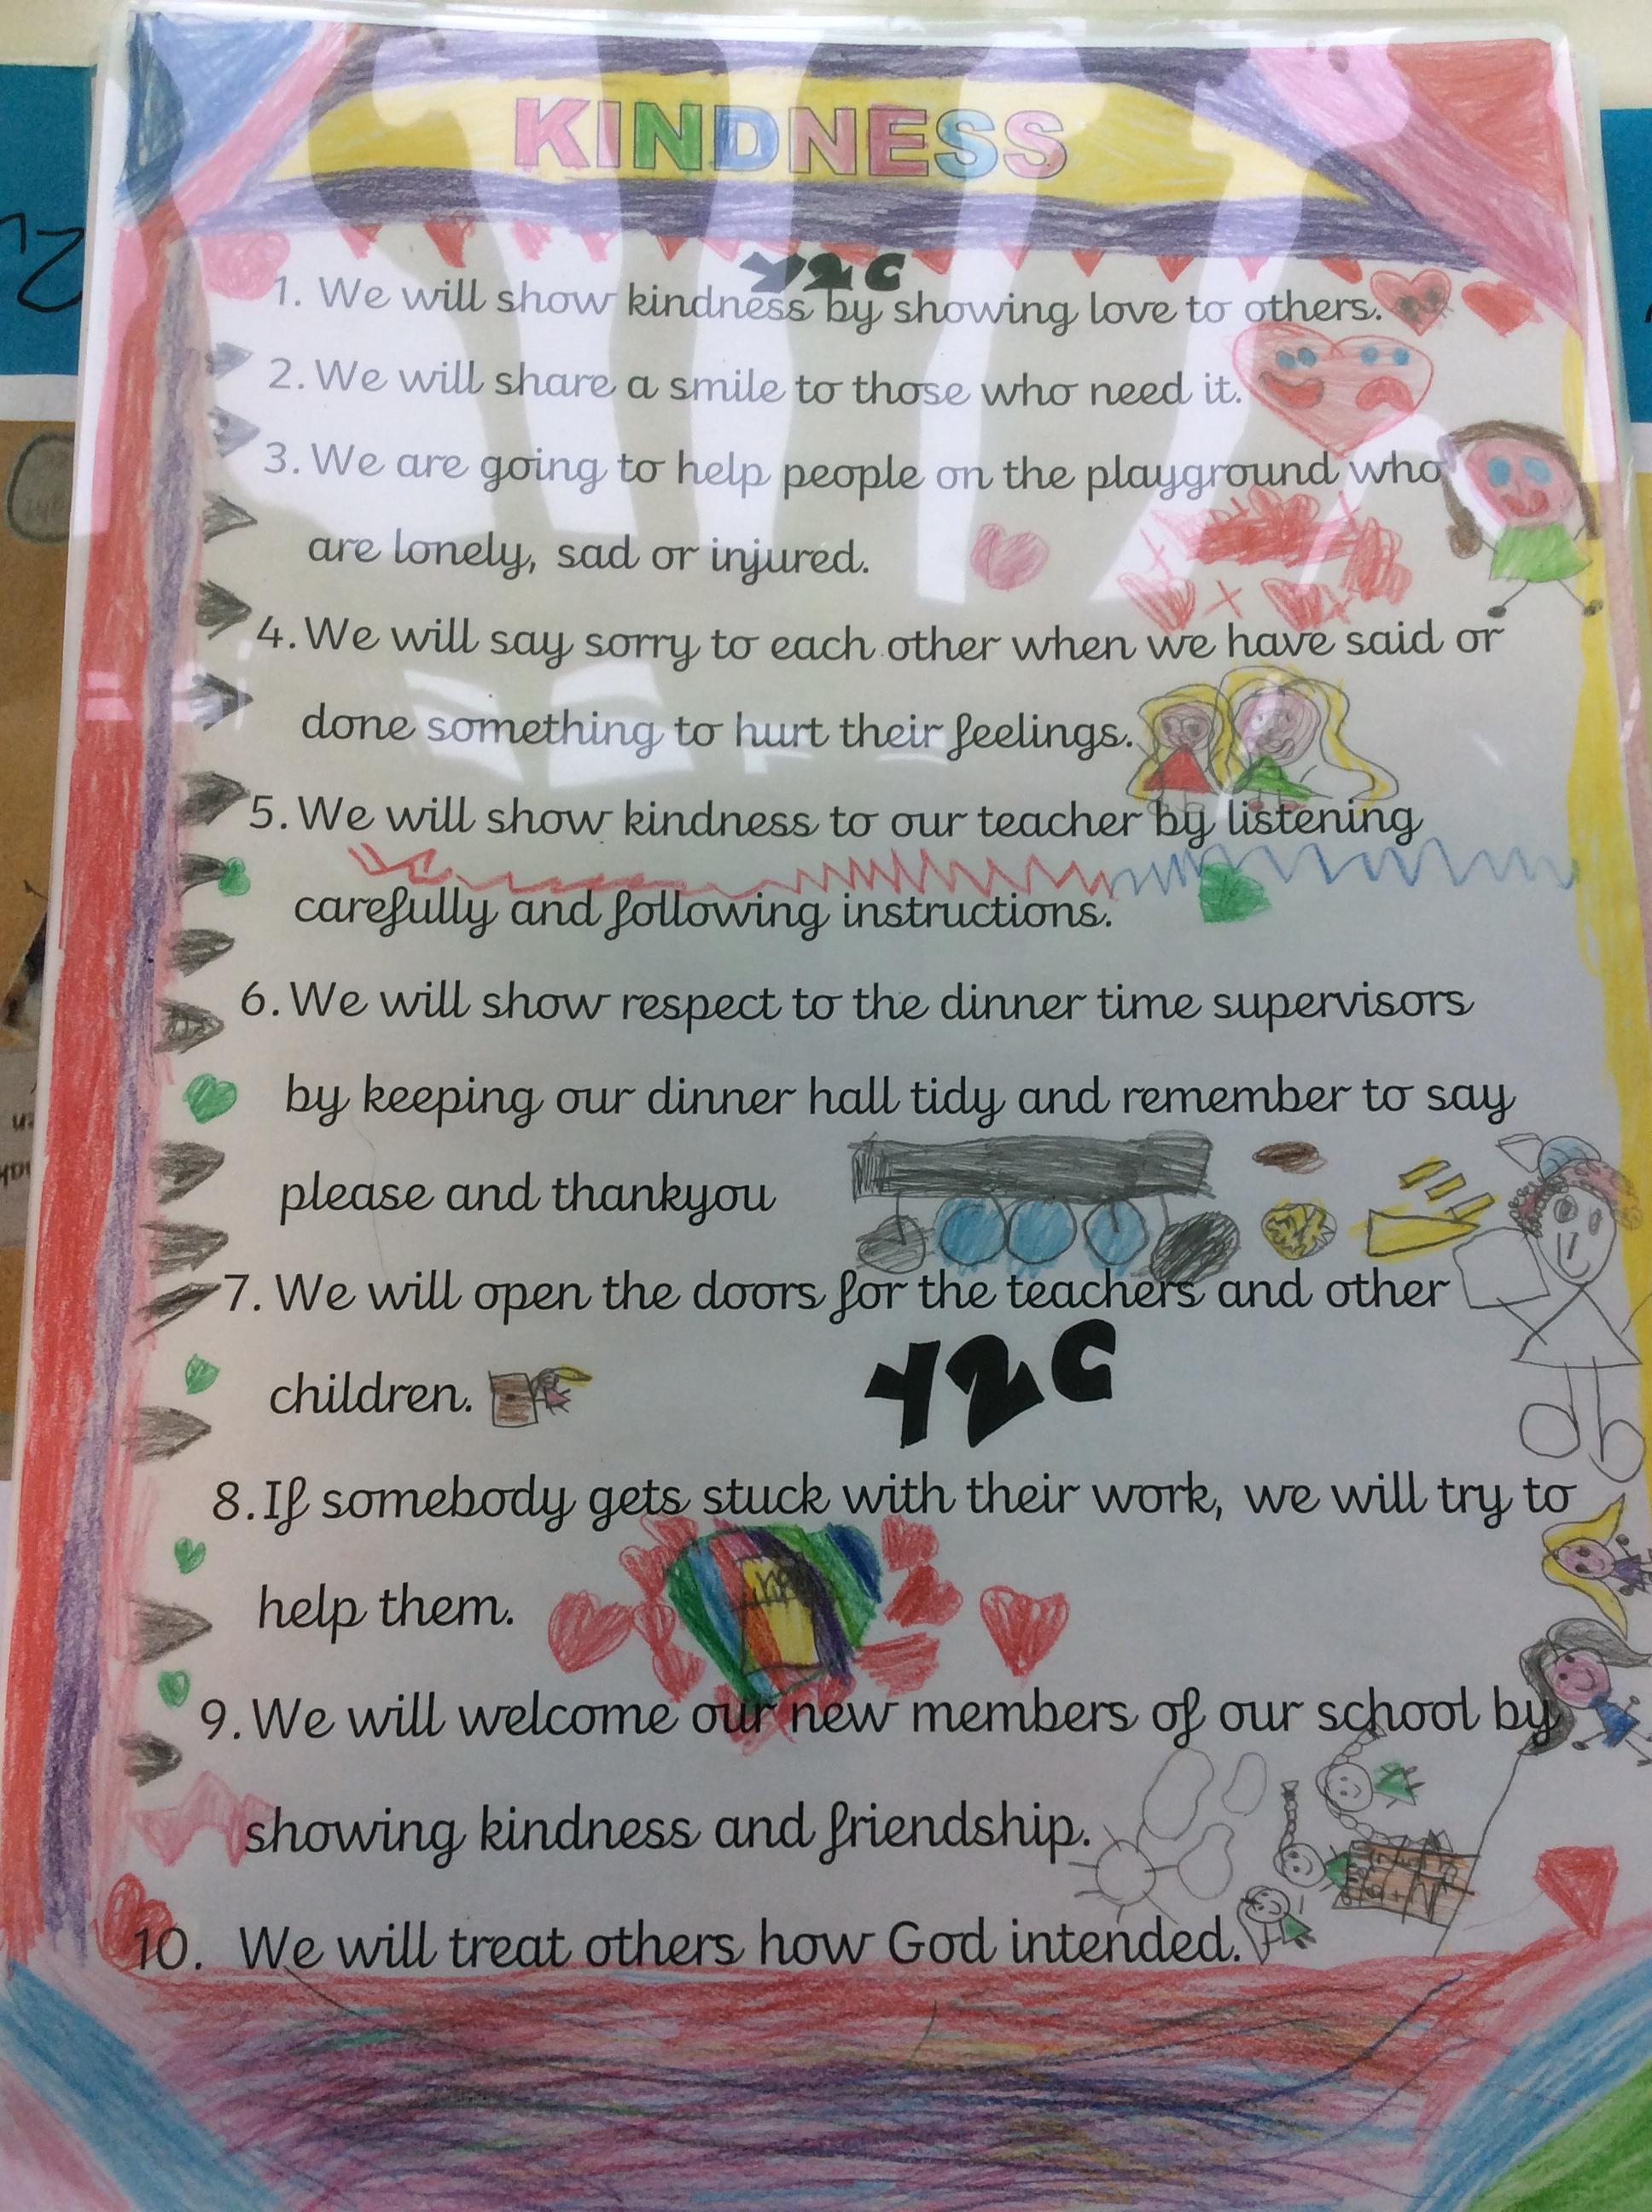 KINDNESS
Y2C
1. We will show kindness by showing love to others.
2. We will share a smile to those who need it.
3. We are going to help people on the playground who
are lonely, sad or injured.
4. We will say sorry to each other when we have said or
done something to hurt their feelings.
5. We will show kindness to our teacher by listening
carefully and following instructions.
6. We will show respect to the dinner time supervisors
by keeping our dinner hall tidy and remember to say
please and thankyou
7. We will open the doors for the teachers and other
children.
Y2C
8. If somebody gets stuck with their work, we will try to
help them.
9. We will welcome our new members of our school by
showing kindness and friendship.
10. We will treat others how God intended.